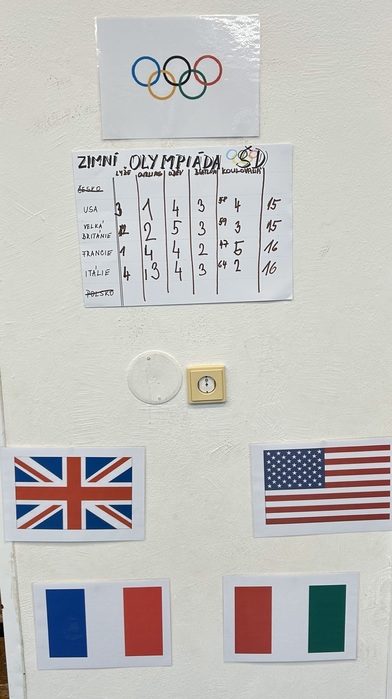 ZIMNÍ OLYMPIÁDA ŠD
LYŽE CURLING BIATLON KOULOVAČKA
ČESKO
USA 3 1 4 3 58 4 15
VELKÁ BRITÁNIE 2 5 3 59 3 15
FRANCIE 1 4 4 2 47 5 16
ITÁLIE 4 3 4 3 64 2 16
POLSKO